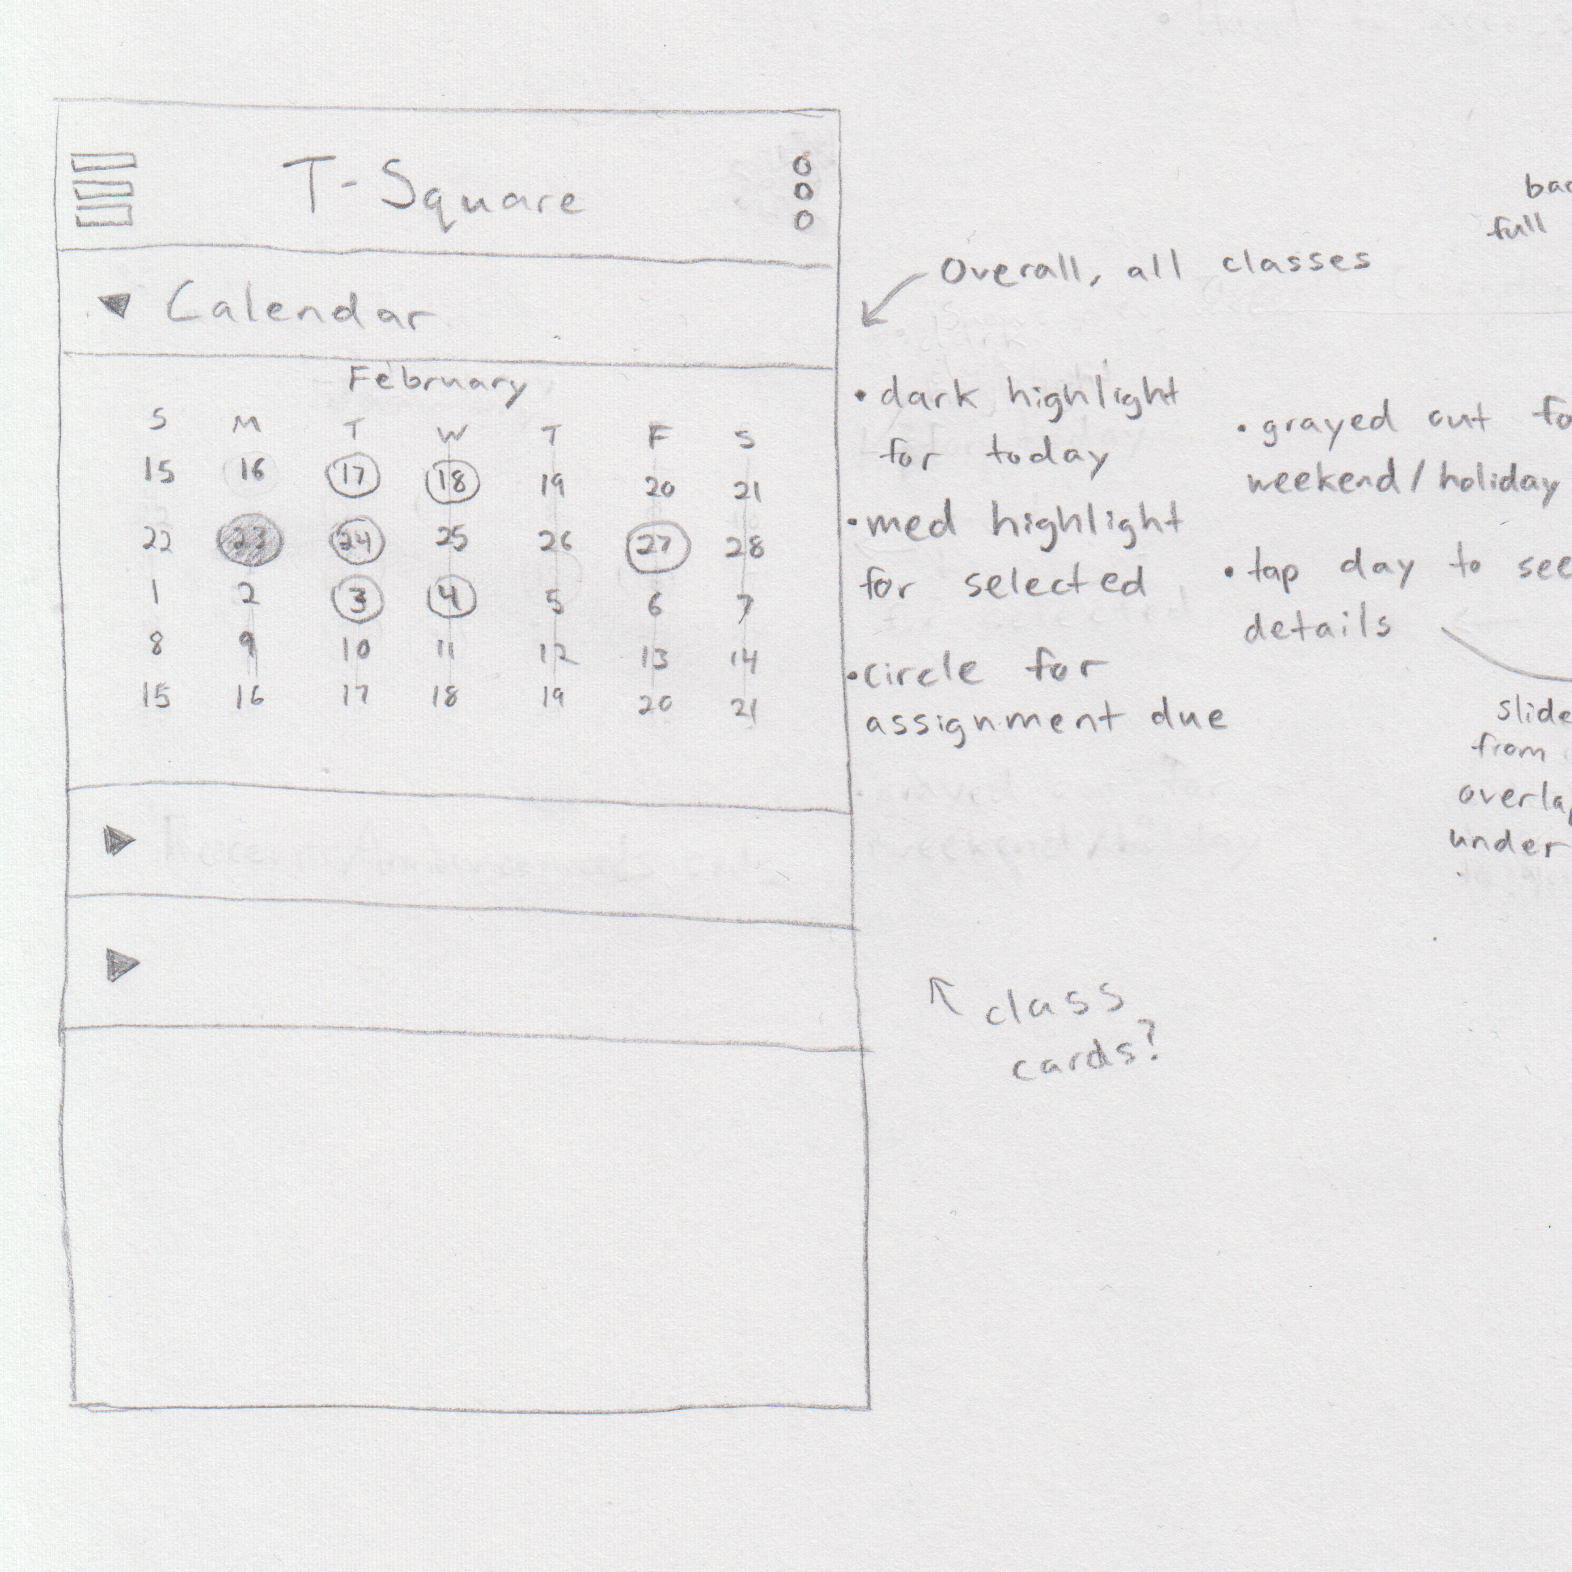 T-Square
Calendar
February
S M T W T F S
15 16 17 18 19 20 21
22 23 24 25 26 27 28
1 2 3 4 5 6 7
8 9 10 11 12 13 14
15 16 17 18 19 20 21
Overall, all classes
• dark highlight
for today
• med highlight
for selected
• circle for
assignment due
• grayed out
weekend/holiday
• tap day to see
details
full
from
under
class
cards?